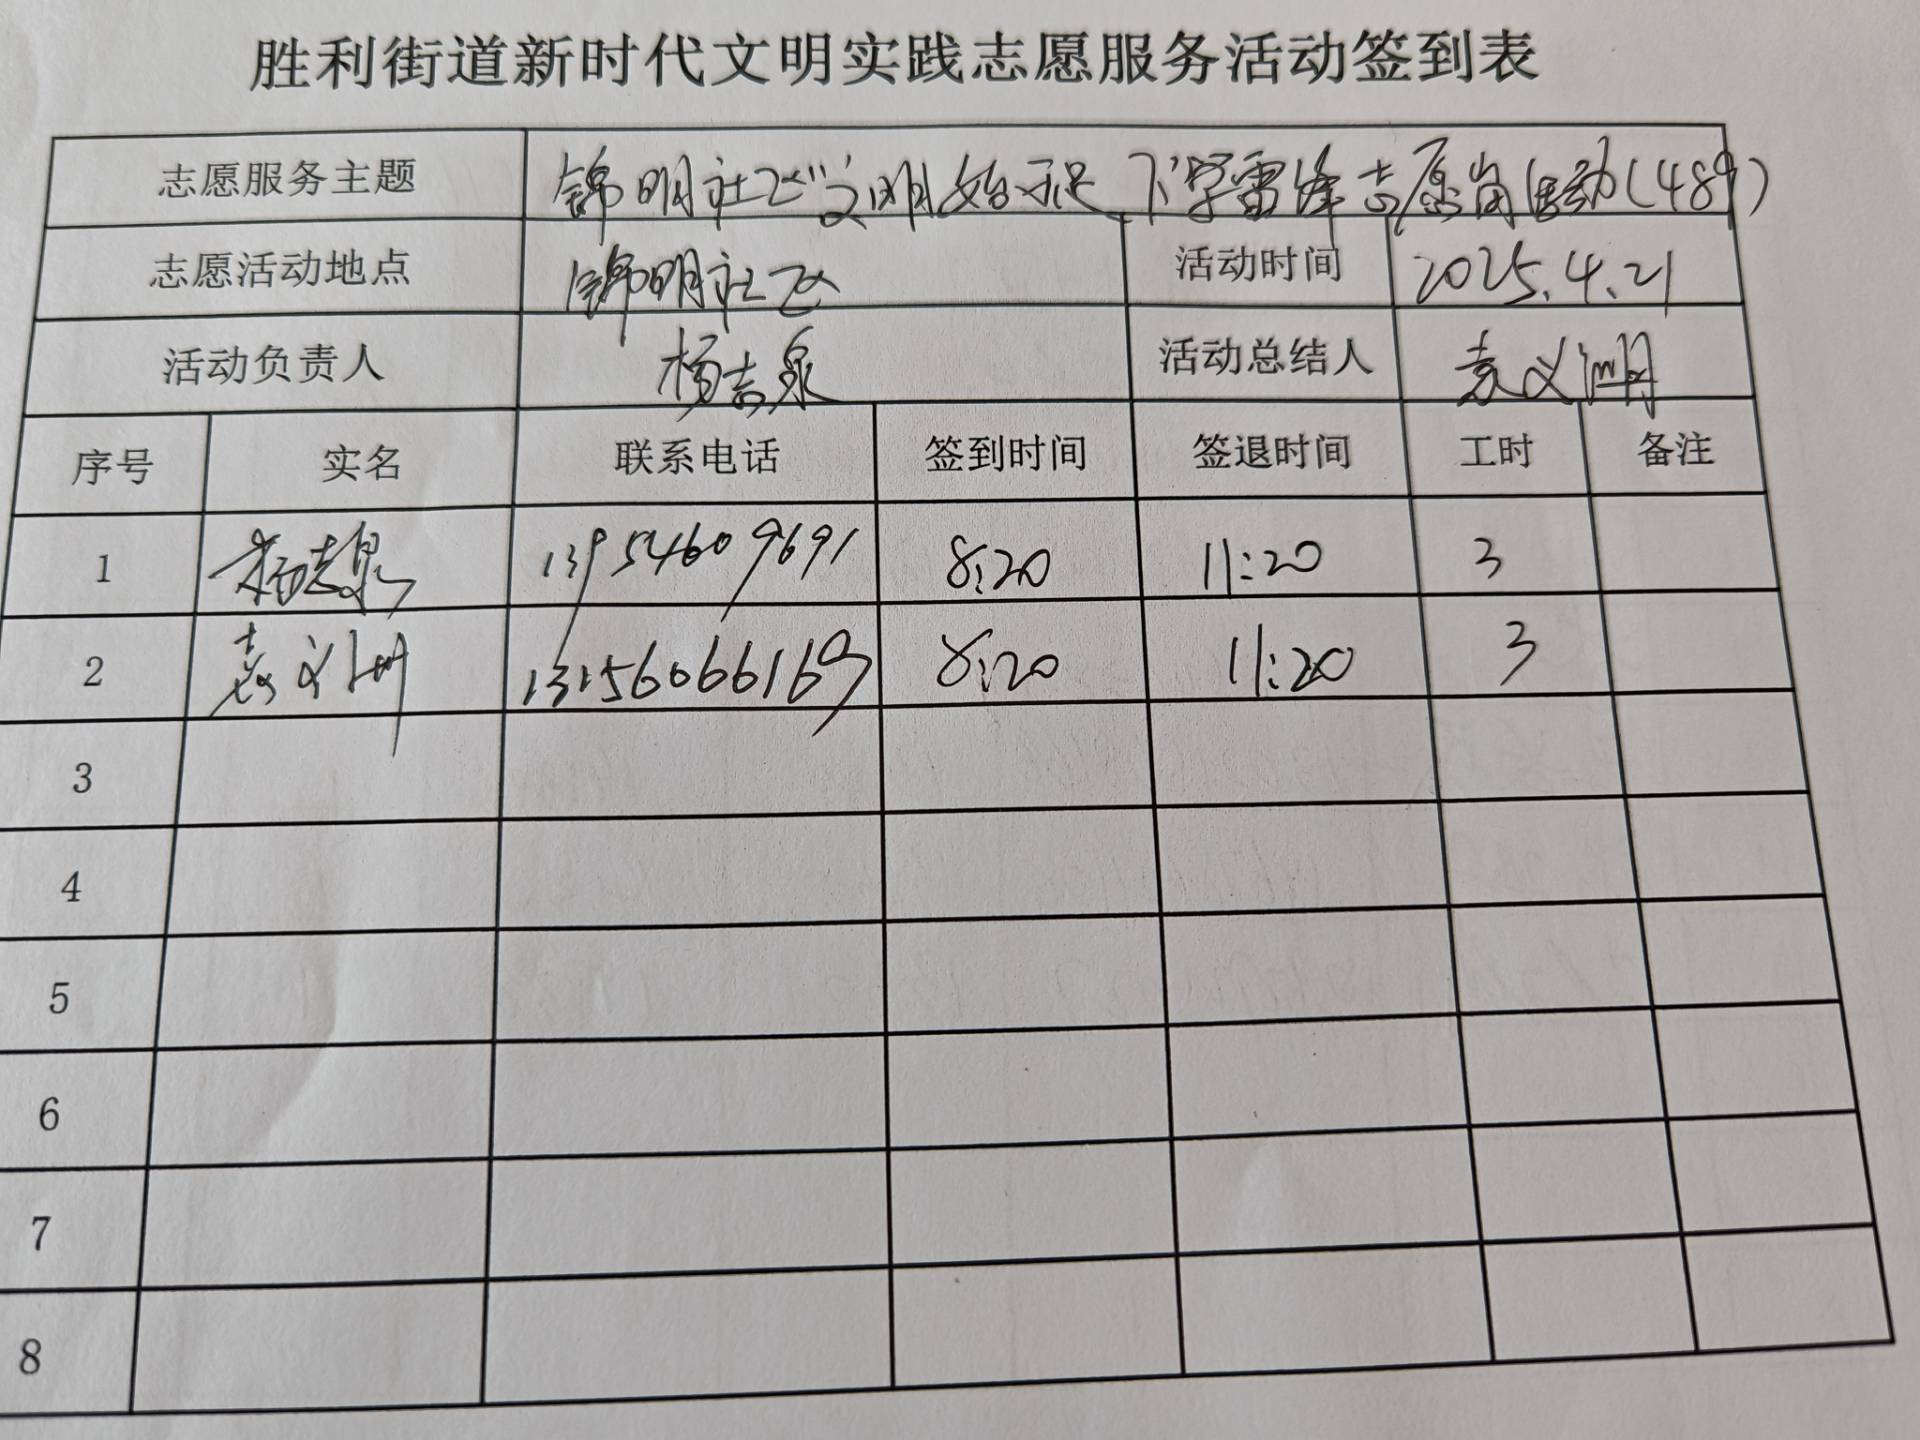 胜利街道新时代文明实践志愿服务活动签到表
志愿服务主题 锦明社区"文明始于足下"学雷锋志愿岗活动(489)
志愿活动地点 锦明社区 活动时间 2025.4.21
活动负责人 杨志泉 活动总结人 袁义
序号 实名 联系电话 签到时间 签退时间 工时 备注
1 杨志泉 13954609691 8:20 11:20 3
2 袁义 13156066169 8:20 11:20 3
3
4
5
6
7
8